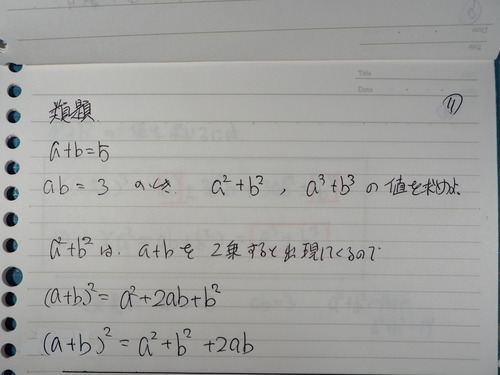 Title
Date
11
類題
a+b=5
ab=3 のとき a²+b², a³+b³ の値を求めよ.
a²+b² は、a+b を 2乗すると出現してくるので
(a+b)² = a²+2ab+b²
(a+b)² = a²+b²+2ab